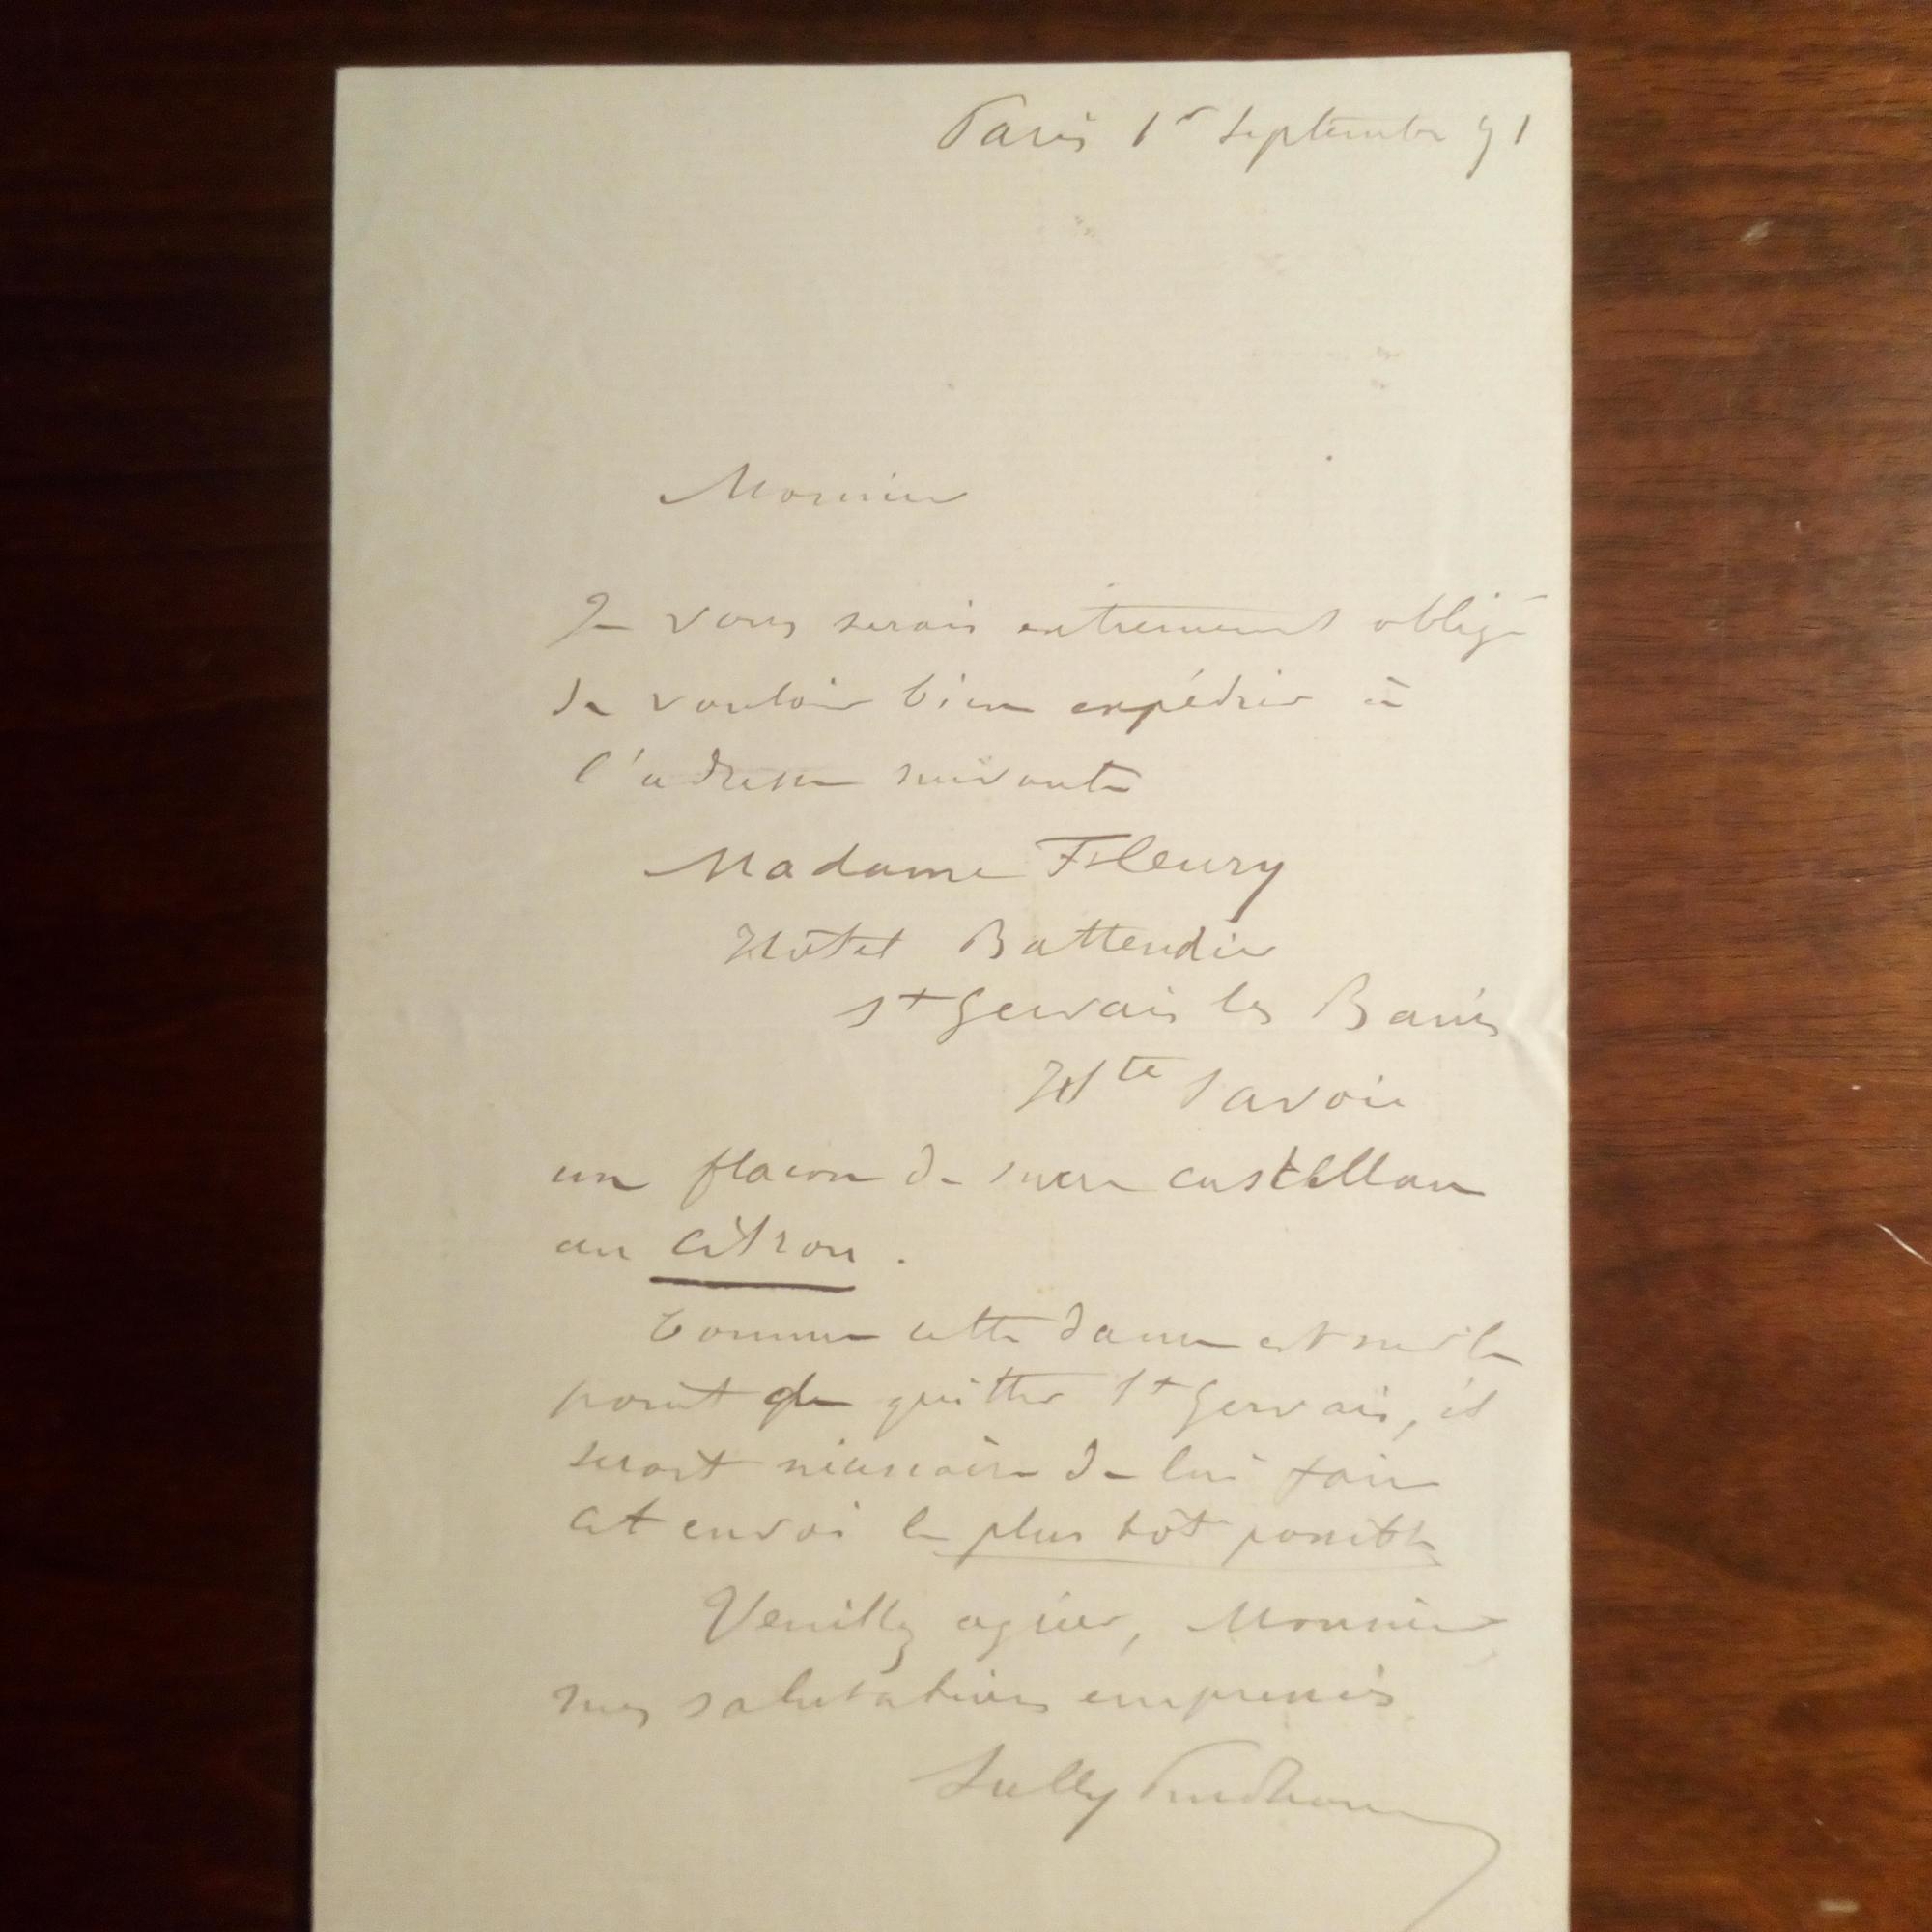 Paris 1er Septembre 91
Monsieur
Je vous serais extremement obligé
de vouloir bien expédier à
l'adresse suivante
Madame Fleury
Hôtel Battendier
St Gervais les Bains
Hte Savoie
un flacon de sucre castellan
au citron.
Comme cette dame est sur le
point de quitter St Gervais, il
serait nécessaire de lui faire
cet envoi le plus tôt possible
Veuillez agréer, Monsieur,
mes salutations empressées.
Sully Prudhomme